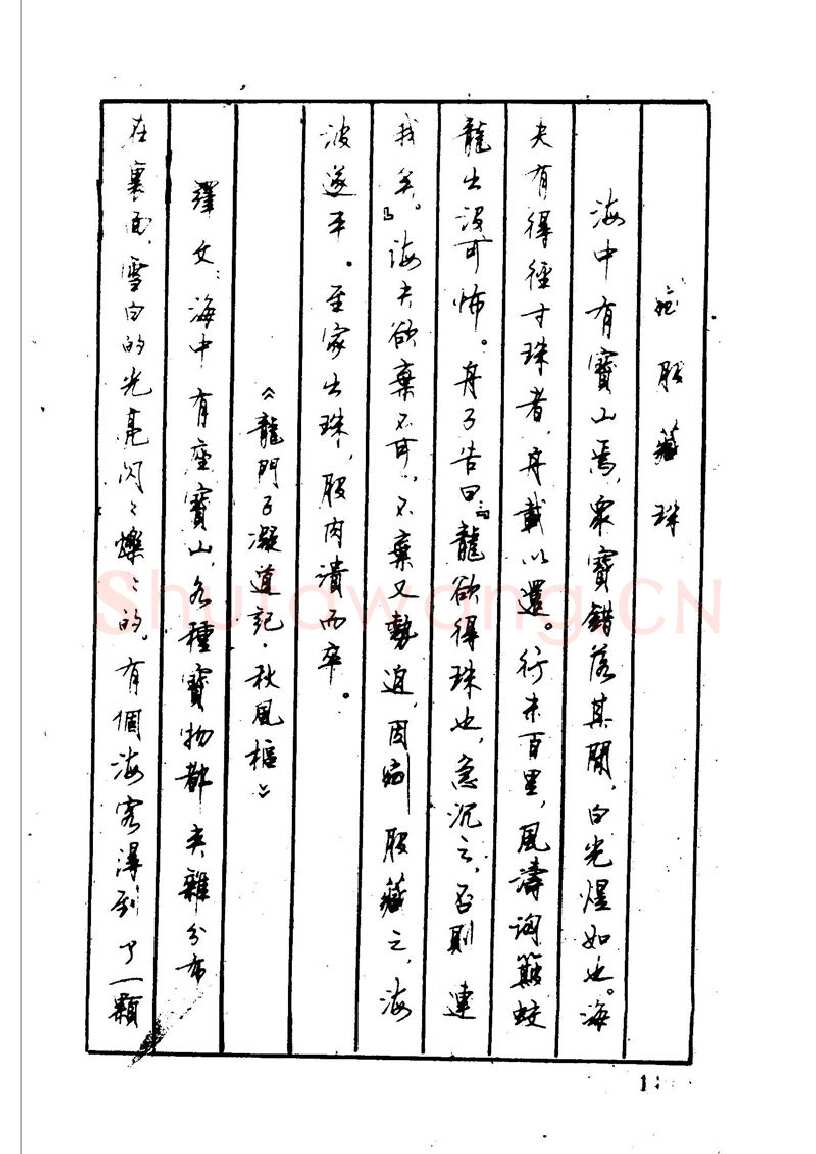 剜股藏珠
海中有寶山焉，衆寶錯落其間，白光煜如也。海
夫有得徑寸珠者，舟載以還。行未百里，風濤洶簸，蛟
龍出没可怖。舟子告曰：『龍欲得珠也，急沉之，否則連
我矣。』海夫欲棄不可，不棄又勢迫，因剜股藏之，海
波遂平。至家出珠，股肉潰而卒。
《龍門子凝道記·秋風樞》
譯文：海中有座寶山，各種寶物都夾雜分布
在裏面，雪白的光亮閃々爍々的。有個海客得到了一顆
Shufawang.CN
1